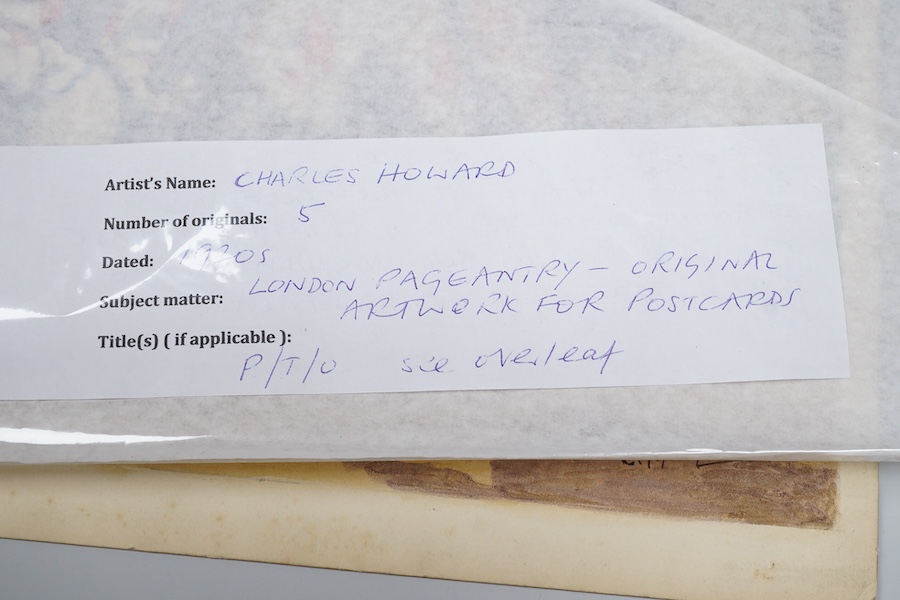 Artist's Name: CHARLES HOWARD
Number of originals: 5
Dated: 1920s
Subject matter: LONDON PAGEANTRY - ORIGINAL
ARTWORK FOR POSTCARDS
Title(s) ( if applicable ):
P/T/O see overleaf